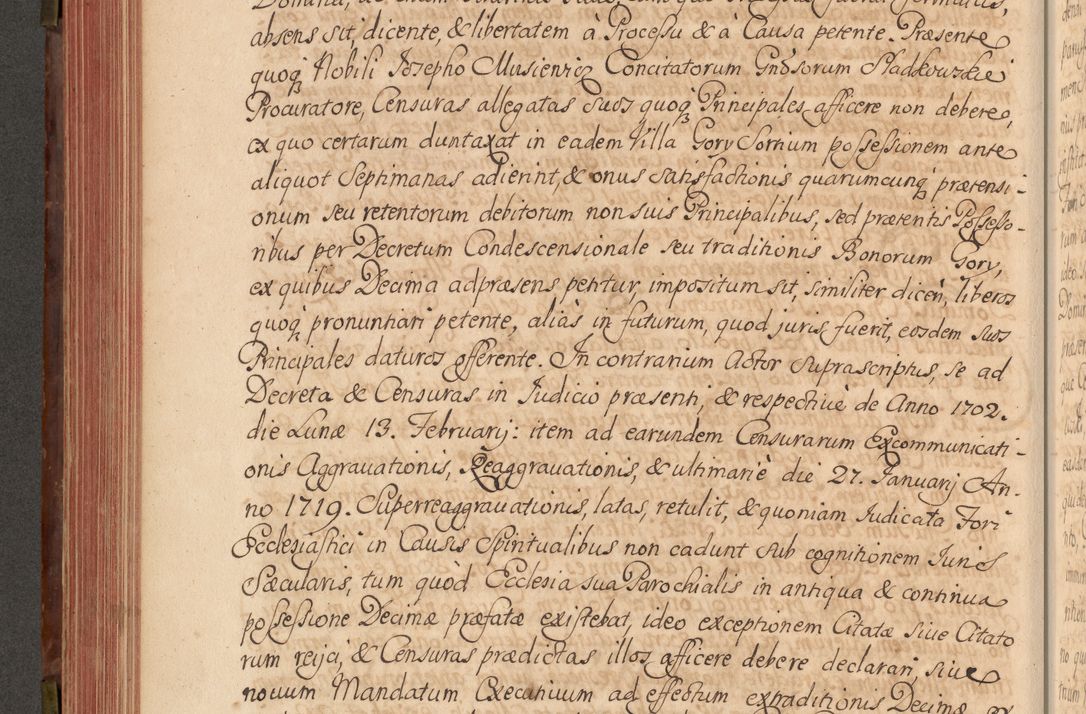 absens sit, dicente, & libertatem à Processu & à Causa petente. Præsente
quoq̨ Nobili Josepho Musienicz Concitatorum Gnosorum Sladkowskie
Procuratore, Censuras allegatas suos quoq̨ Principales afficere non debere,
ex quo certarum duntaxat in eadem Villa Gory Sortium possessionem ante
aliquot Septimanas adierint, & onus satisfactionis quarumcunq̨ prætensi-
onum seu retentorum debitorum non suis Principalibus, sed præteritis Possesso-
ribus per Decretum Condescensionale seu traditionis Bonorum Gory,
ex quibus Decima ad præsens petitur, impositum sit, similiter dicen, liberos
quoq̨ pronuntiari petente, alias in futurum, quod juris fuerit, eosdem suos
Principales daturos offerente. In contrarium Actor suprascriptus, se ad
Decreta & Censuras in Judicio præsenti, & respectivè de Anno 1702.
die Lunæ 13. Februarij: item ad earundem Censurarum Excommunicati-
onis Aggravationis, Reaggravationis, & ultimariè die 27. Januarij An-
no 1719. Superreaggravationis, latas, retulit, & quoniam Judicata Fori
Ecclesiastici in Causis Spiritualibus non cadunt sub cognitionem Juris
Sæcularis, tum quòd Ecclesia sua Parochialis in antiqua & continua
possessione Decimæ præfatæ existebat, ideo exceptionem Citatæ sive Citato
rum reijci, & Censuras prædictas illos afficere debere declarari, sive
novum Mandatum Executivum ad effectum extraditionis Decimæ ex